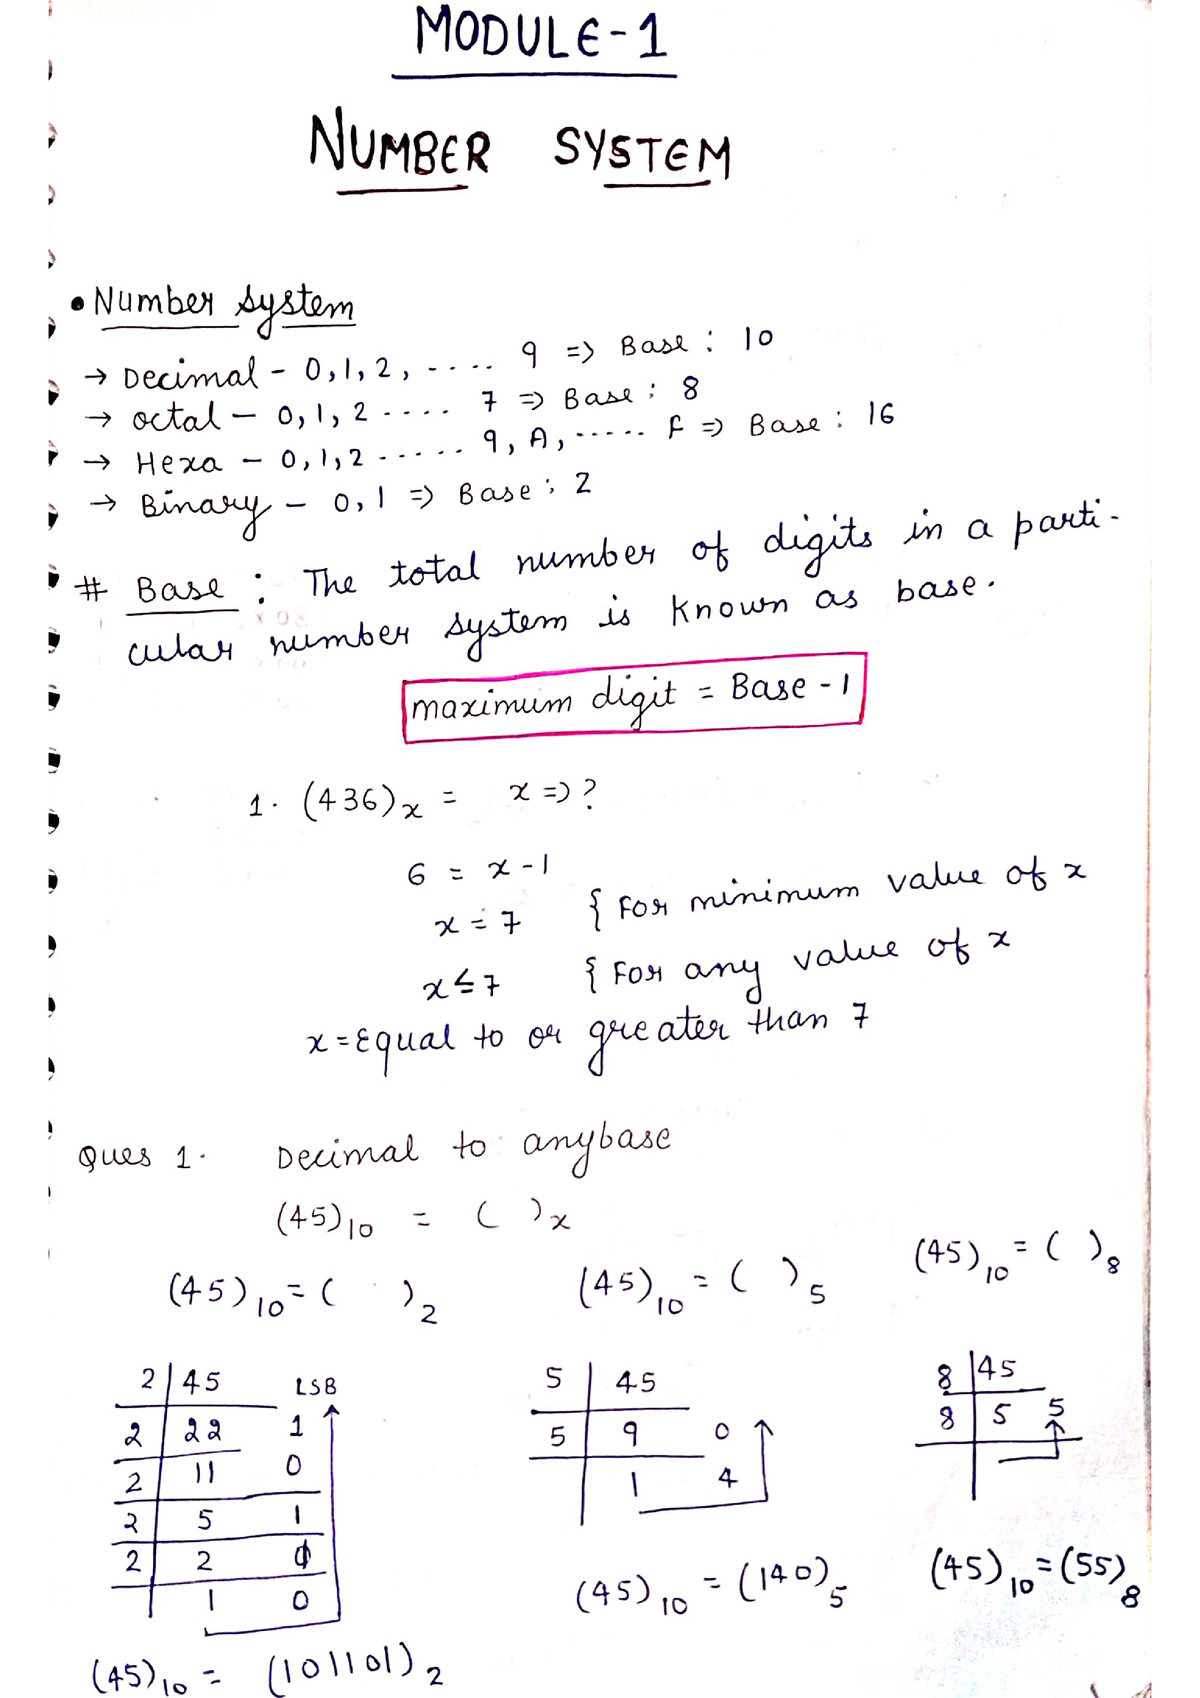 MODULE-1
NUMBER SYSTEM
• Number system
→ Decimal - 0,1,2, ---- 9 => Base : 10
→ octal – 0,1,2 ---- 7 => Base : 8
→ Hexa – 0,1,2 ----- 9, A, ----- F => Base : 16
→ Binary – 0,1 => Base : 2
# Base : The total number of digits in a parti-
cular number system is known as base.
maximum digit = Base - 1
1. (436)x = x => ?
6 = x - 1
x = 7 { For minimum value of x
x ≤ 7 { For any value of x
x = Equal to or greater than 7
Ques 1. Decimal to anybase
(45)10 = ( )x
(45)10 = ( )2 (45)10 = ( )5 (45)10 = ( )8
2 45 LSB
2 22 1
2 11 0
2 5 1
2 2
1 0
(45)10 = (101101)2
5 45
5 9 0
1 4
(45)10 = (140)5
8 45
8 5 5
(45)10 = (55)8